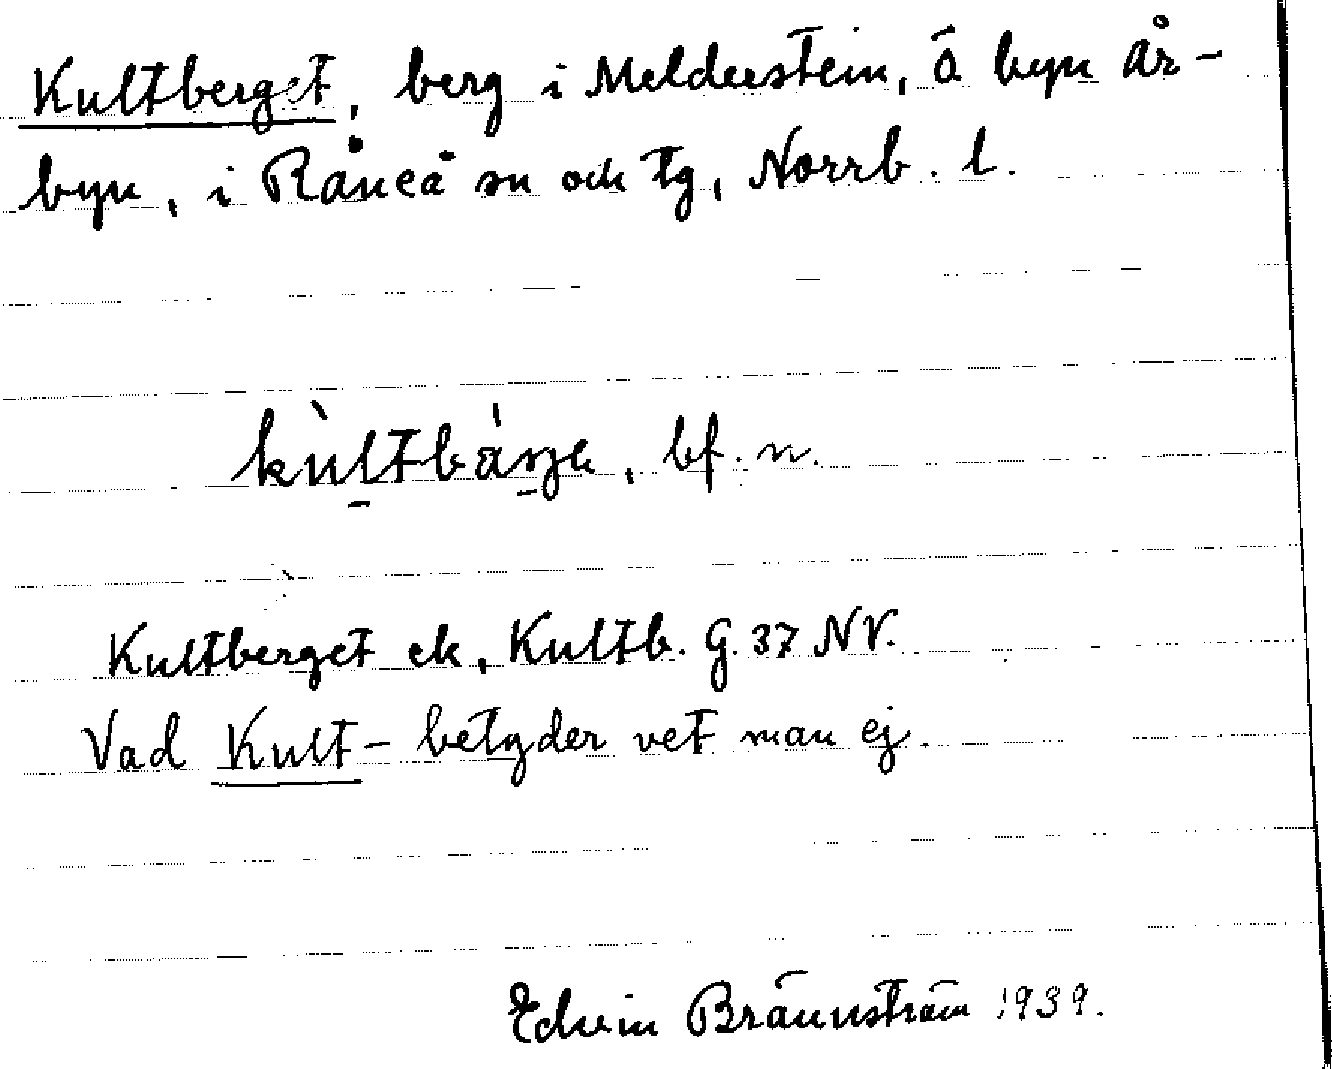 Kultberget, berg i Melderstein, å byn År-
byn, i Råneå sn och tg, Norrb. l.
kùltbàrje, bf. n.
Kultberget ek, Kultb. G. 37 NV.
Vad Kult- betyder vet man ej.
Edvin Brännström 1939.